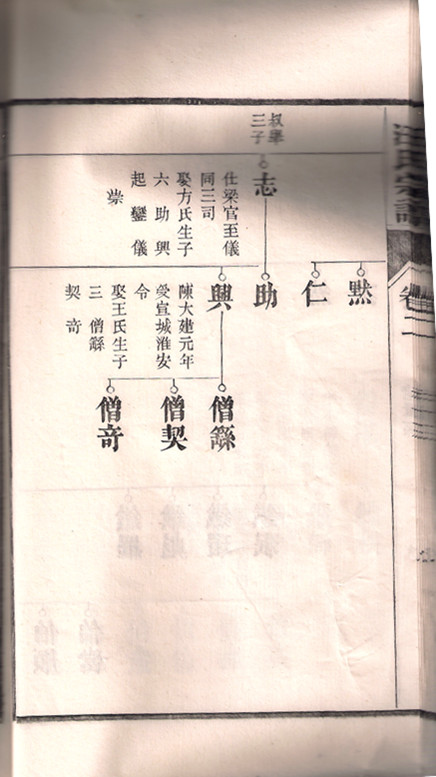 卷二
叔舉
三子
志
仕梁官至儀
同三司
娶方氏生子
六助興
起鑾儀
崇
默
仁
助
興
陳大建元年
爰宣城淮安
令
娶王氏生子
三僧繇
契竒
僧繇
僧契
僧竒